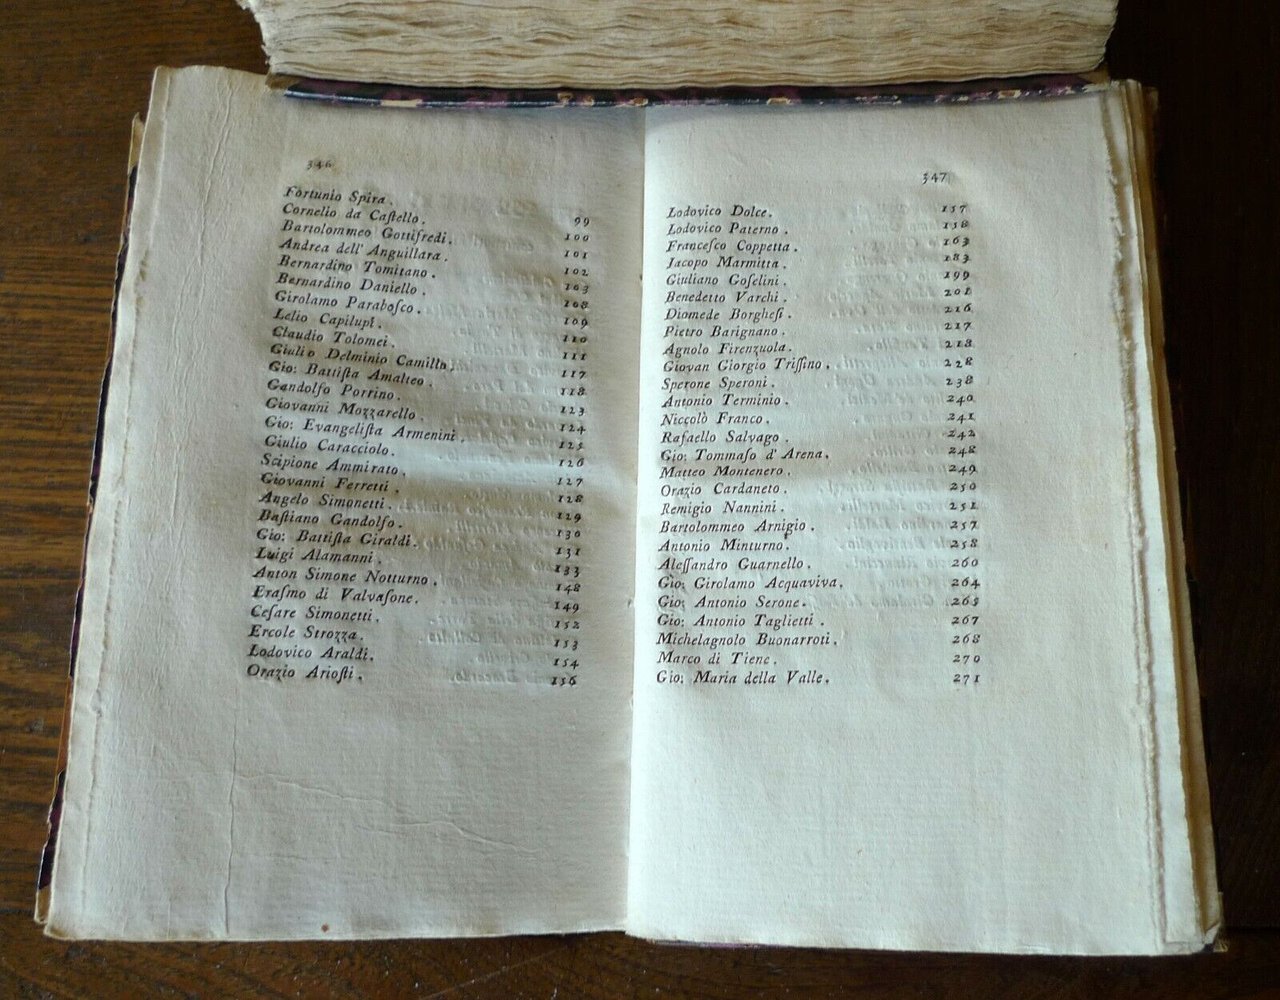 346
Fortunio Spira. 99
Cornelio da Caſtello. 100
Bartolommeo Gottifredi. 101
Andrea dell' Anguillara. 102
Bernardino Tomitano. 103
Bernardino Daniello. 108
Girolamo Paraboſco. 109
Lelio Capilupi. 110
Claudio Tolomei. 111
Giulio Delminio Camillo. 117
Gio: Battiſta Amalteo. 118
Gandolfo Porrino. 123
Giovanni Mozzarello. 124
Gio: Evangeliſta Armenini. 125
Giulio Caracciolo. 126
Scipione Ammirato. 127
Giovanni Ferretti. 128
Angelo Simonetti. 129
Baſtiano Gandolfo. 130
Gio: Battiſta Giraldi. 131
Luigi Alamanni. 133
Anton Simone Notturno. 148
Eraſmo di Valvaſone. 149
Ceſare Simonetti. 152
Ercole Strozza. 153
Lodovico Araldi. 154
Orazio Arioſti. 156
347
Lodovico Dolce. 157
Lodovico Paterno. 158
Franceſco Coppetta. 163
Jacopo Marmitta. 183
Giuliano Goſelini. 199
Benedetto Varchi. 201
Diomede Borgheſi. 216
Pietro Barignano. 217
Agnolo Firenzuola. 218
Giovan Giorgio Triſſino. 228
Sperone Speroni. 238
Antonio Terminio. 240
Niccolò Franco. 241
Rafaello Salvago. 242
Gio: Tommaſo d' Arena. 248
Matteo Montenero. 249
Orazio Cardaneto. 250
Remigio Nannini. 251
Bartolommeo Arnigio. 257
Antonio Minturno. 258
Aleſſandro Guarnello. 260
Gio: Girolamo Acquaviva. 264
Gio: Antonio Serone. 265
Gio: Antonio Taglietti. 267
Michelagnolo Buonarroti. 268
Marco di Tiene. 270
Gio: Maria della Valle. 271